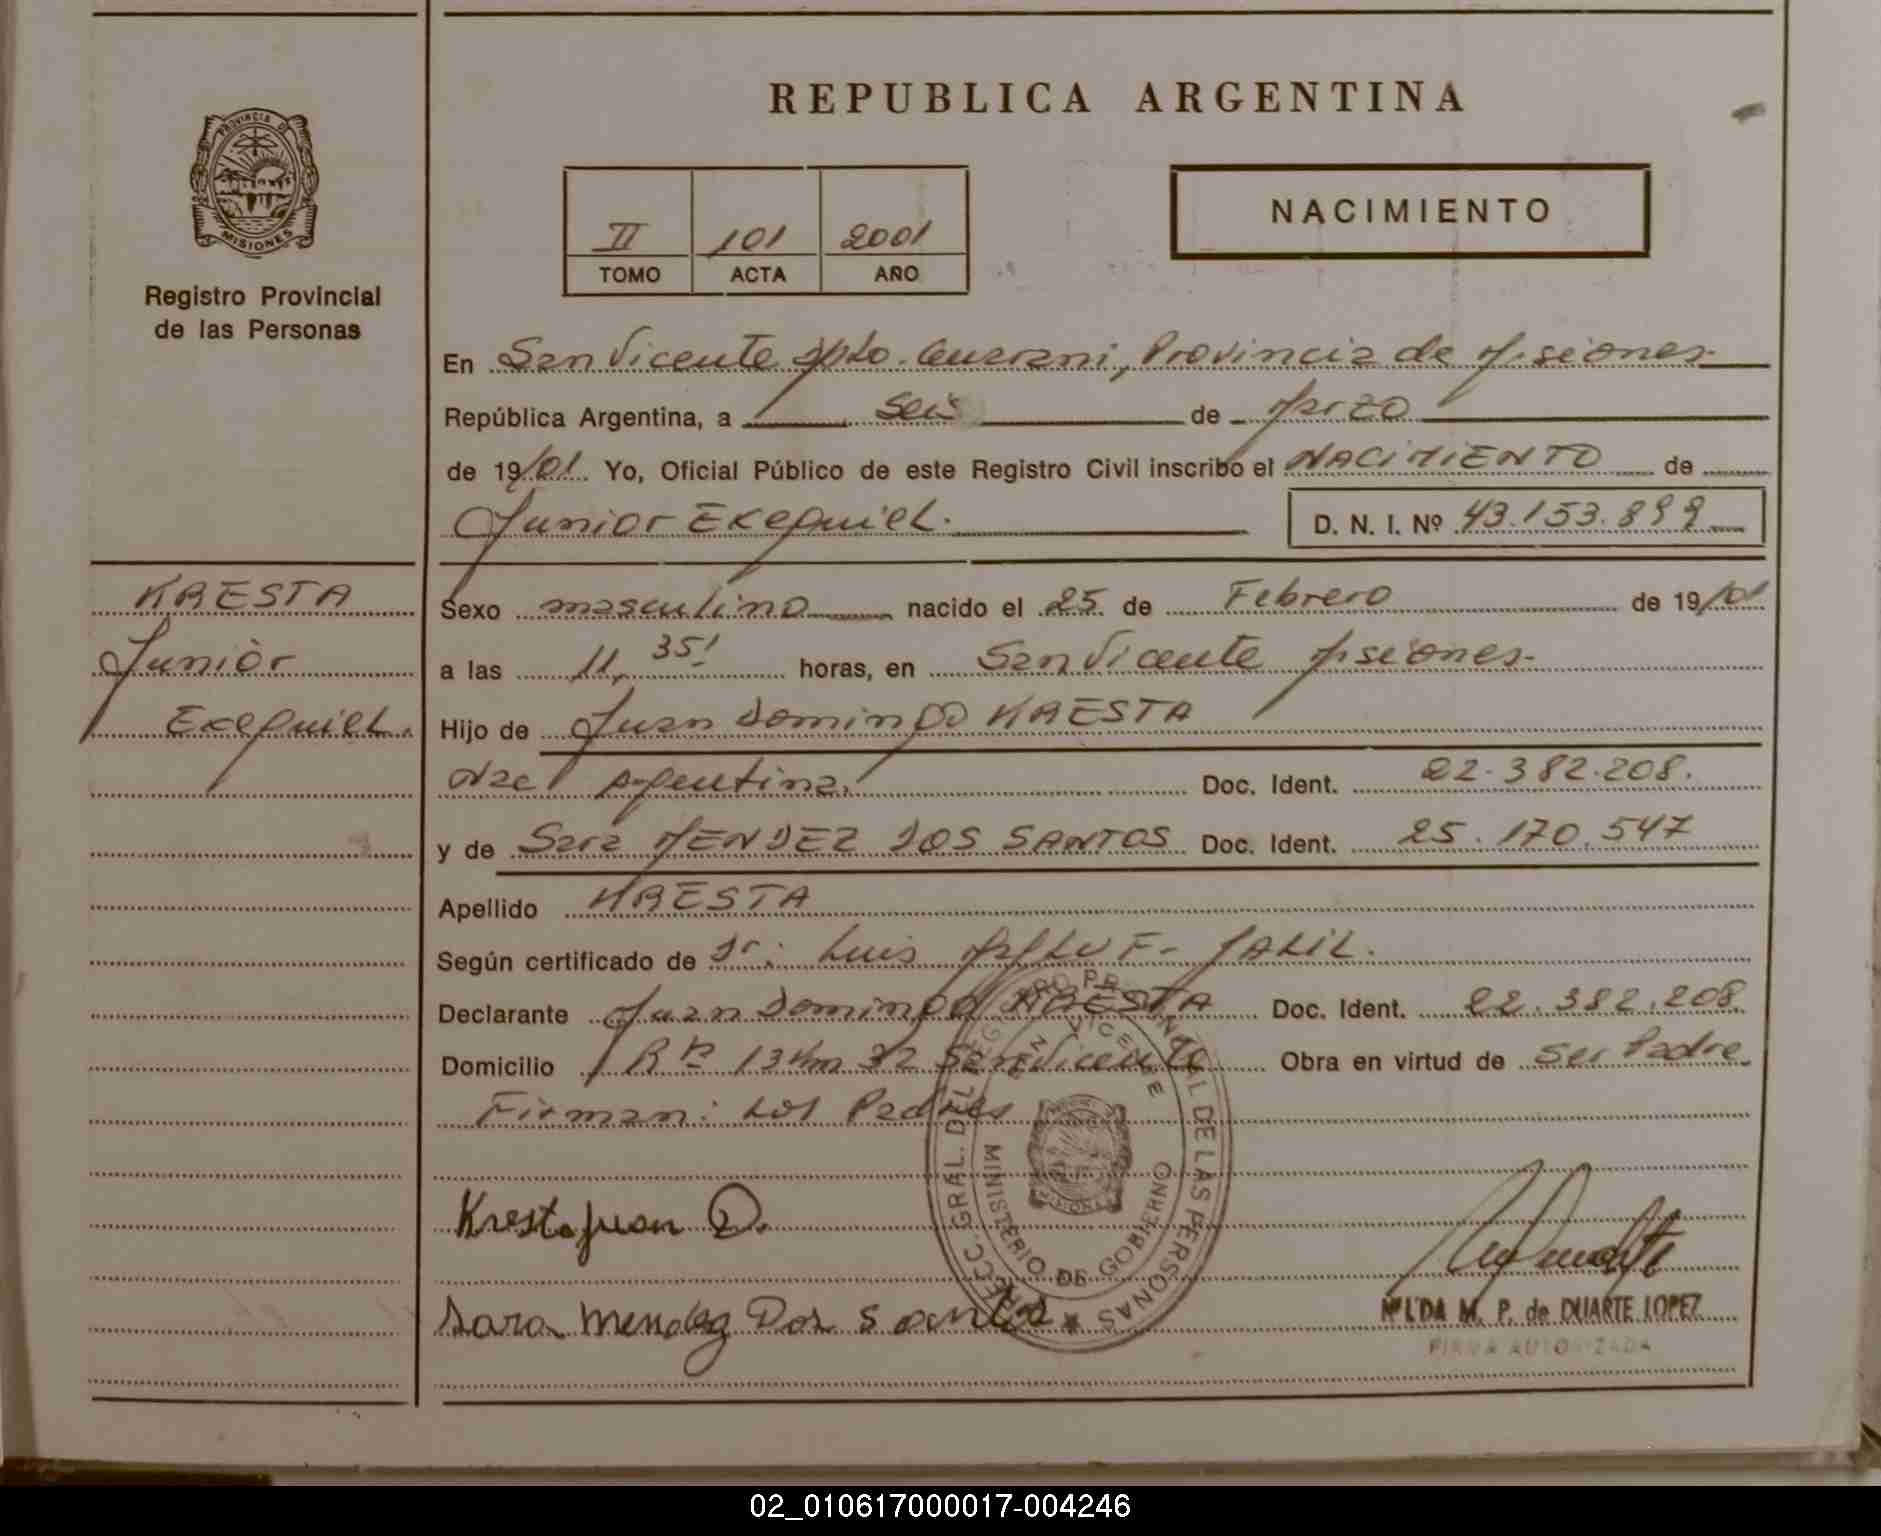 REPUBLICA ARGENTINA
PROVINCIA DE
MISIONES
Registro Provincial
de las Personas
II 101 2001
TOMO ACTA AÑO
NACIMIENTO
En San Vicente Dpto. Guarani, Provincia de Misiones
República Argentina, a seis de Marzo
de 19/01. Yo, Oficial Público de este Registro Civil inscribo el NACIMIENTO de
Junior Exequiel. D. N. I. Nº 43.153.899
KRESTA
Junior
Exequiel.
Sexo masculino nacido el 25 de Febrero de 19/01
a las 11,35' horas, en San Vicente Misiones.
Hijo de Juan Domingo KRESTA
Nac Argentina. Doc. Ident. 22.382.208.
y de Sara MENDEZ DOS SANTOS Doc. Ident. 25.170.547
Apellido KRESTA
Según certificado de Dr: Luis F. JALIL.
Declarante Juan Domingo KRESTA Doc. Ident. 22.382.208
Domicilio R n 13 Km 32 San Vicente Obra en virtud de ser Padre
Firman: Los Padres
DIRECC. GRAL. DEL REGISTRO PROVINCIAL DE LAS PERSONAS
SAN VICENTE
MINISTERIO DE GOBIERNO
MISIONES
Kresta Juan D.
Sara Mendez Dos Santos
M. P. de DUARTE LOPEZ
FIRMA AUTORIZADA
02_010617000017-004246